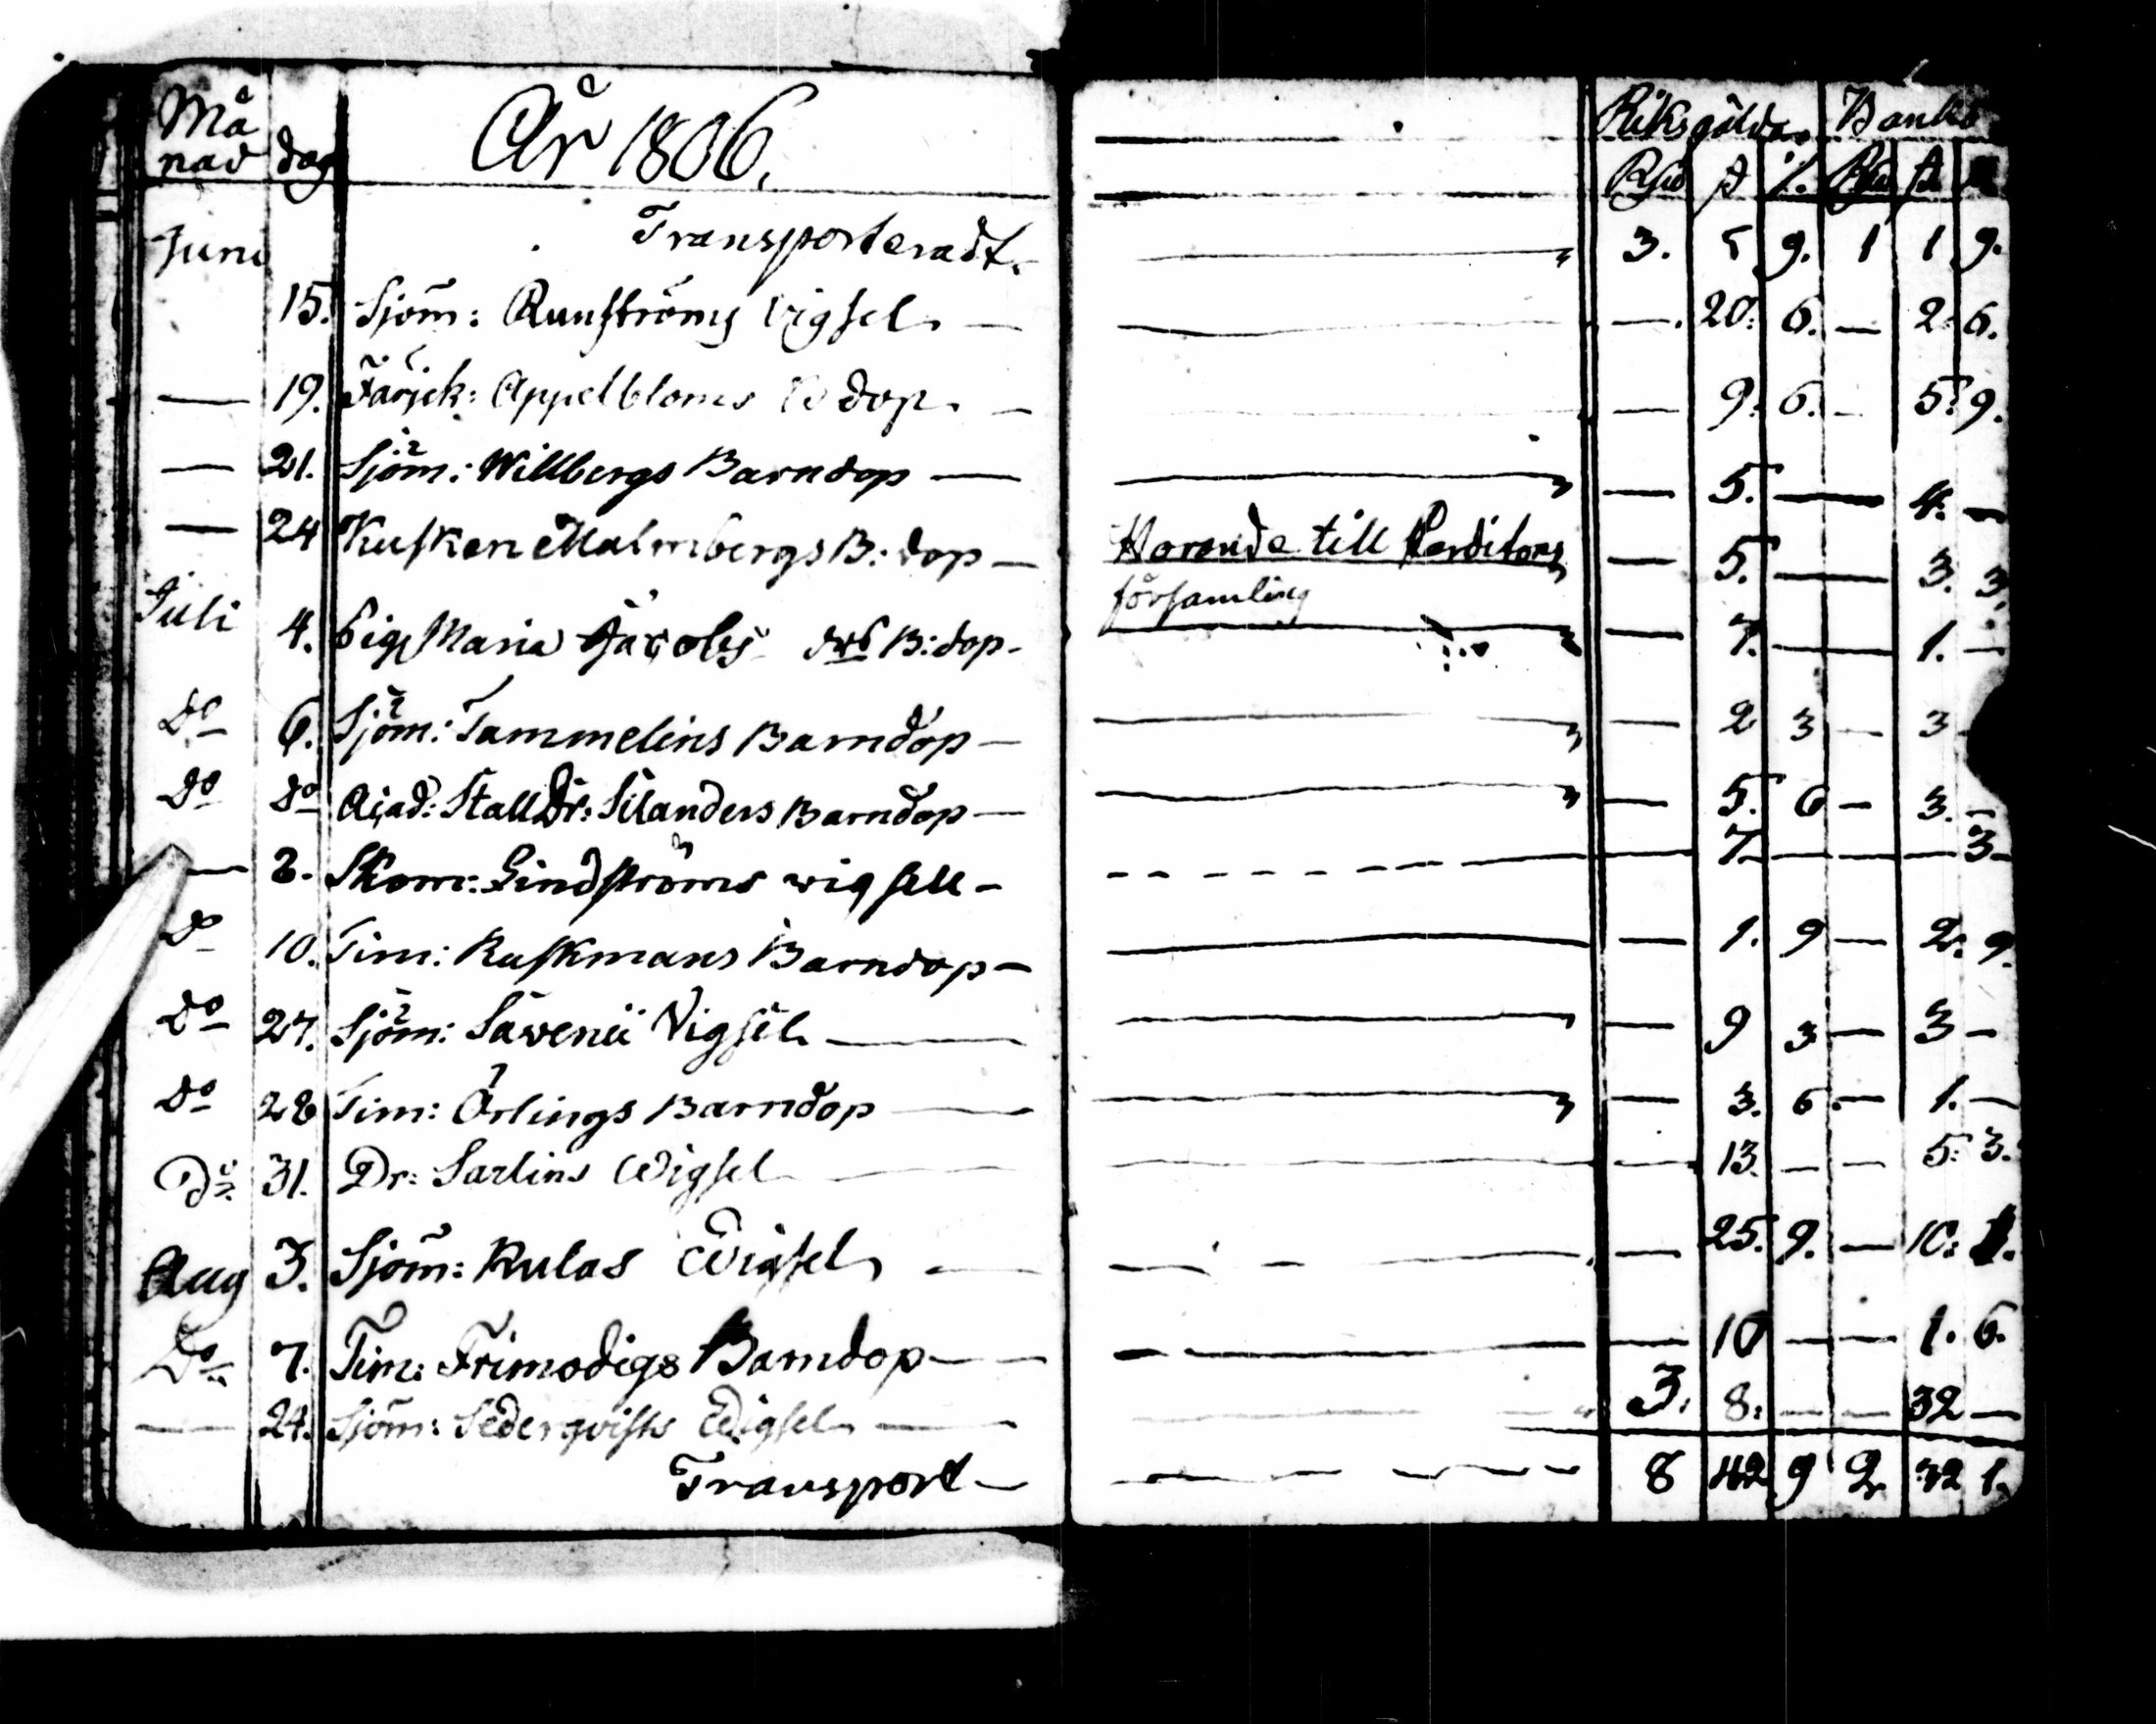 Må
nad dag År 1806. Riksgälds Banko
Rsd ß /. Rsd ß
Juni Transporteradt. 3. 5 9. 1 1 9.
15. Sjöm: Runströms Vigsel — — 20. 6. — 2. 6.
— 19. Appelbloms B dop. — — 9. 6. — 5. 9.
— 21. Sjöm: Willbergs Barndop — — 5. — 4. —
— 24 Kusken Malmbergs B: dop — Horende till — 5. — 3. 3.
församling
Juli 4. Pig Maria B: dop — — 7. — 1. —
Do 6. Sjöm: Tammelins Barndop — — 2 3 — 3
Do Do Stall Dr: Silanders Barndop — — 5. 6 — 3. —
— 8. Skom: Lindströms vigsell — — 7 — — 3
Do 10. Tim: Ruskmans Barndop — — 1. 9 — 2. 9.
Do 27. Sjöm: Savenii Vigsel — — 9 3 — 3 —
Do 28 Tim: Örlings Barndop — — 3. 6. — 1. —
Do 31. Dr: Sarlins Wigsel — — 13. — — 5. 3.
Aug 3. Sjöm: Kulas Wigsel — — 25. 9. — 10: 1.
Do 7. Tim: Frimodigs Barndop — — 10 — — 1. 6.
— 24. Sjöm: Sederqvists Wigsel — 3. 8. — — 32 —
Transport — 8 42 9 2 32 1.